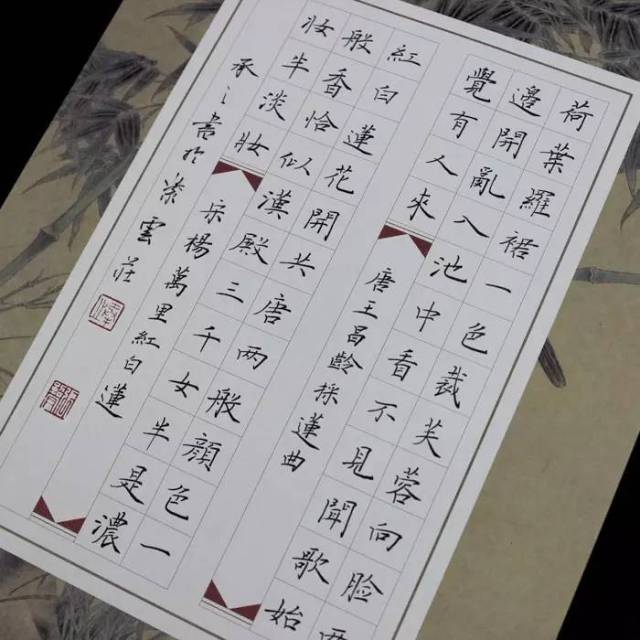 荷葉羅裙一色裁芙蓉向臉兩
邊開亂入池中看不見聞歌始
覺有人來
唐王昌齡採蓮曲
紅白蓮花開共唐兩般顏色一
般香恰似漢殿三千女半是濃
妝半淡妝
宋楊萬里紅白蓮
承之書於紫雲莊